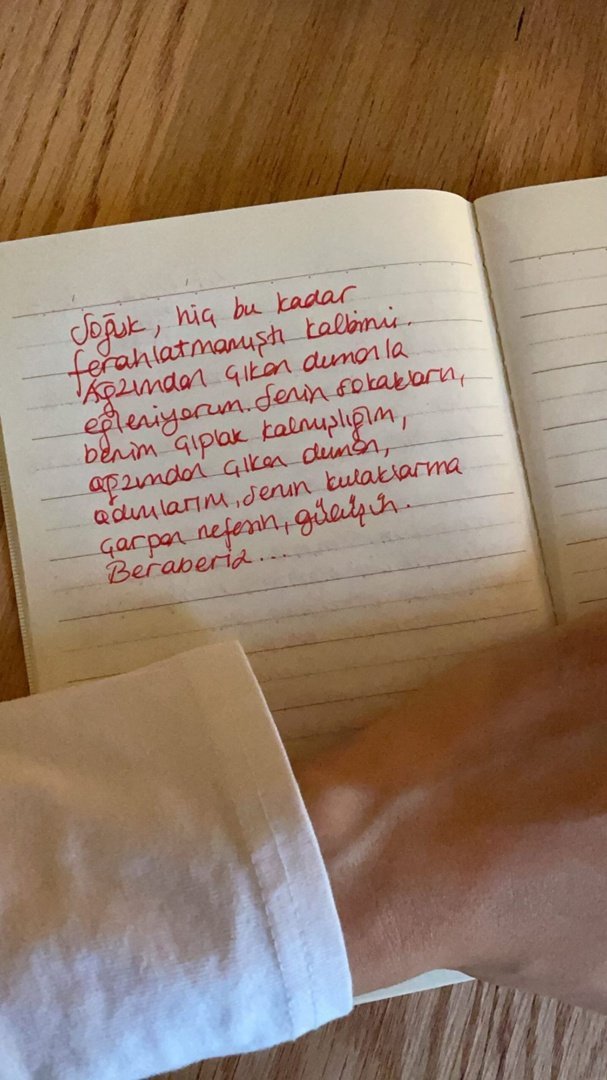 Soğuk, hiç bu kadar
ferahlatmamıştı kalbimi.
Ağzımdan çıkan dumanla
eğleniyorum. Senin sokakların,
benim çıplak kalmışlığım,
ağzımdan çıkan duman,
adımlarım, senin kulaklarıma
çarpan nefesin, gülüşün.
Beraberiz...